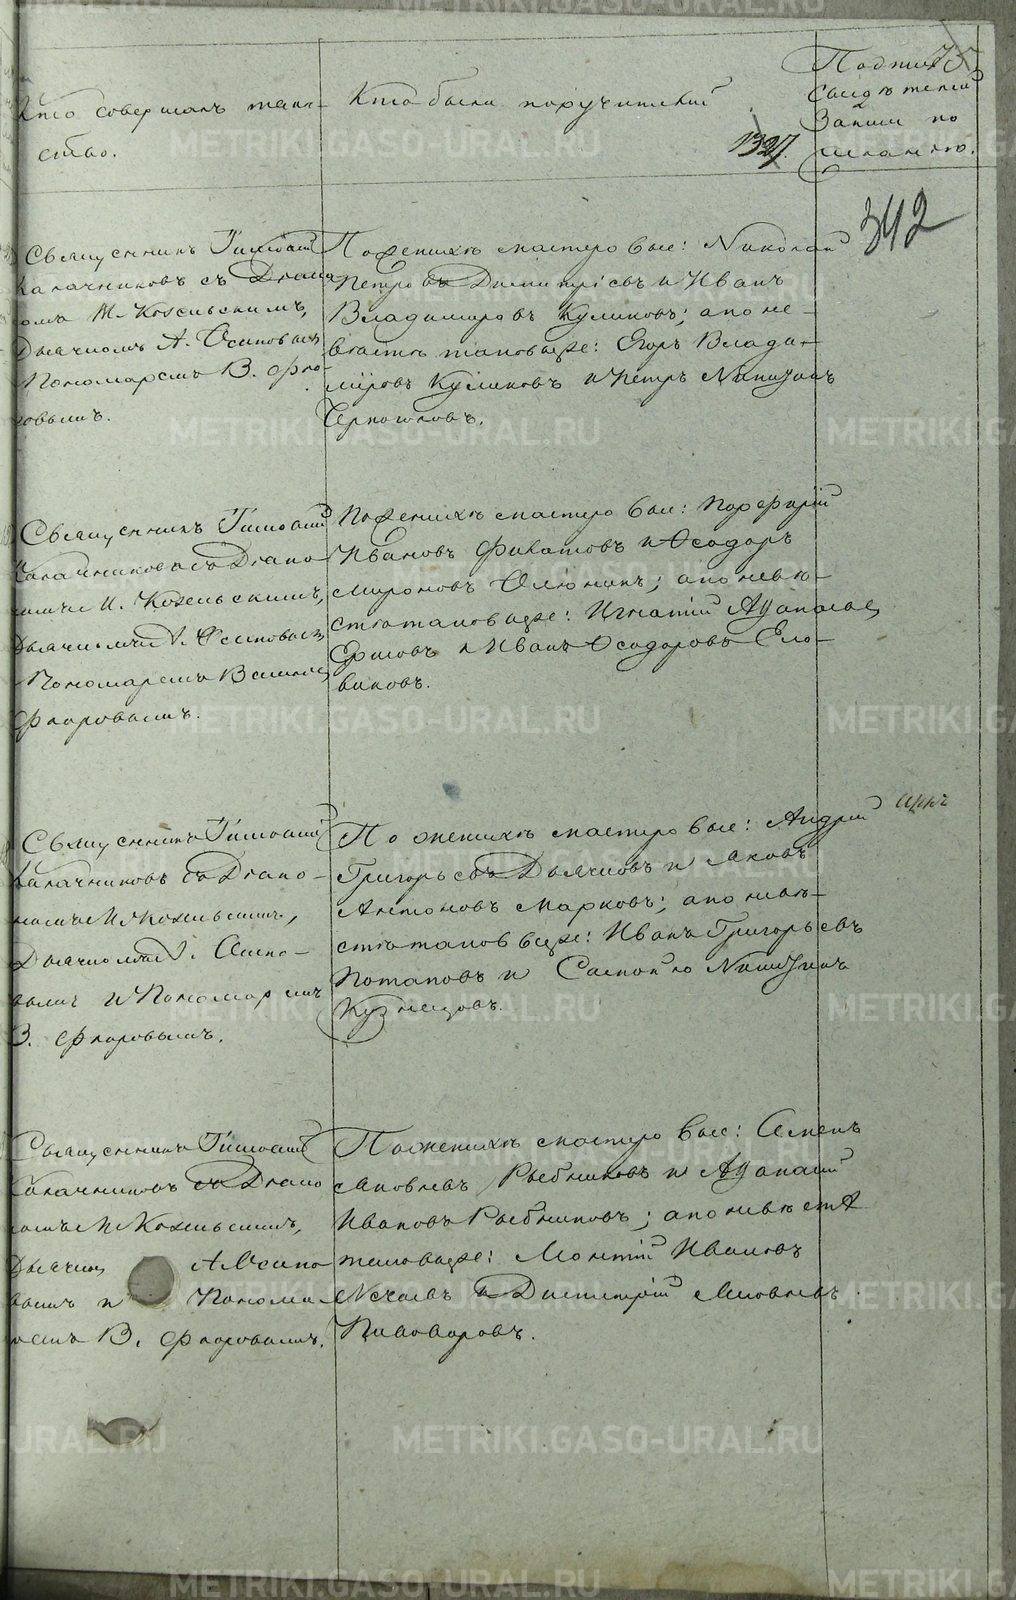 Кто совершалъ таин-
ство.
Кто были поручители
1327.
75
Подпись
свидѣтелей
записи по
желанію.
342
Священникъ Тимофей
Калачниковъ съ Діако-
номъ И. Кожевскимъ,
Дьячкомъ А. Осиповымъ
Пономаремъ В. Фло-
ровымъ.
По женихѣ мастеровые: Николай
Петровъ Димитріевъ и Иванъ
Владимировъ Куликовъ; а по не-
вѣстѣ таковые же: Егоръ Влади-
міровъ Куликовъ и Петръ Никитинъ
Черноголовъ.
Священникъ Тимофей
Калачниковъ съ Діако-
номъ И. Кожевскимъ,
Дьячкомъ А. Осиповымъ
Пономаремъ
Флоровымъ.
По женихѣ мастеровые: Порфирій
Ивановъ Филатовъ и Ѳеодоръ
Мироновъ; а по невѣ-
стѣ таковые же: Игнатій Аѳанасьевъ
и Иванъ Ѳеодоровъ Ело-
виковъ.
Священникъ Тимофей
Калачниковъ съ Діако-
номъ И. Кожевскимъ,
Дьячкомъ А. Осипо-
вымъ и Пономаремъ
В. Флоровымъ.
По женихѣ мастеровые: Андрей
Григорьевъ Дьячковъ и Яковъ
Антоновъ Марковъ; а по невѣ-
стѣ таковые же: Иванъ Григорьевъ
Потаповъ и Никитинъ
Кузнецовъ.
Священникъ Тимофей
Калачниковъ съ Діако-
номъ И. Кожевскимъ,
Дьячкомъ А. Осипо-
вымъ и Понома-
ремъ В. Флоровымъ.
По женихѣ мастеровые: Семенъ
Яковлевъ Рыбниковъ и Аѳанасій
Ивановъ Рыбниковъ; а по невѣстѣ
таковые же: Ивановъ
и Димитрій Яковлевъ
Пивоваровъ.
METRIKI.GASO-URAL.RU